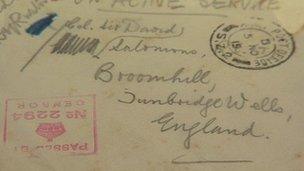 ON ACTIVE SERVICE
Col. Sir David
Salomons,
Broomhill,
Tunbridge Wells,
England.
OFFICE
PASSED BY
No 2294
CENSOR